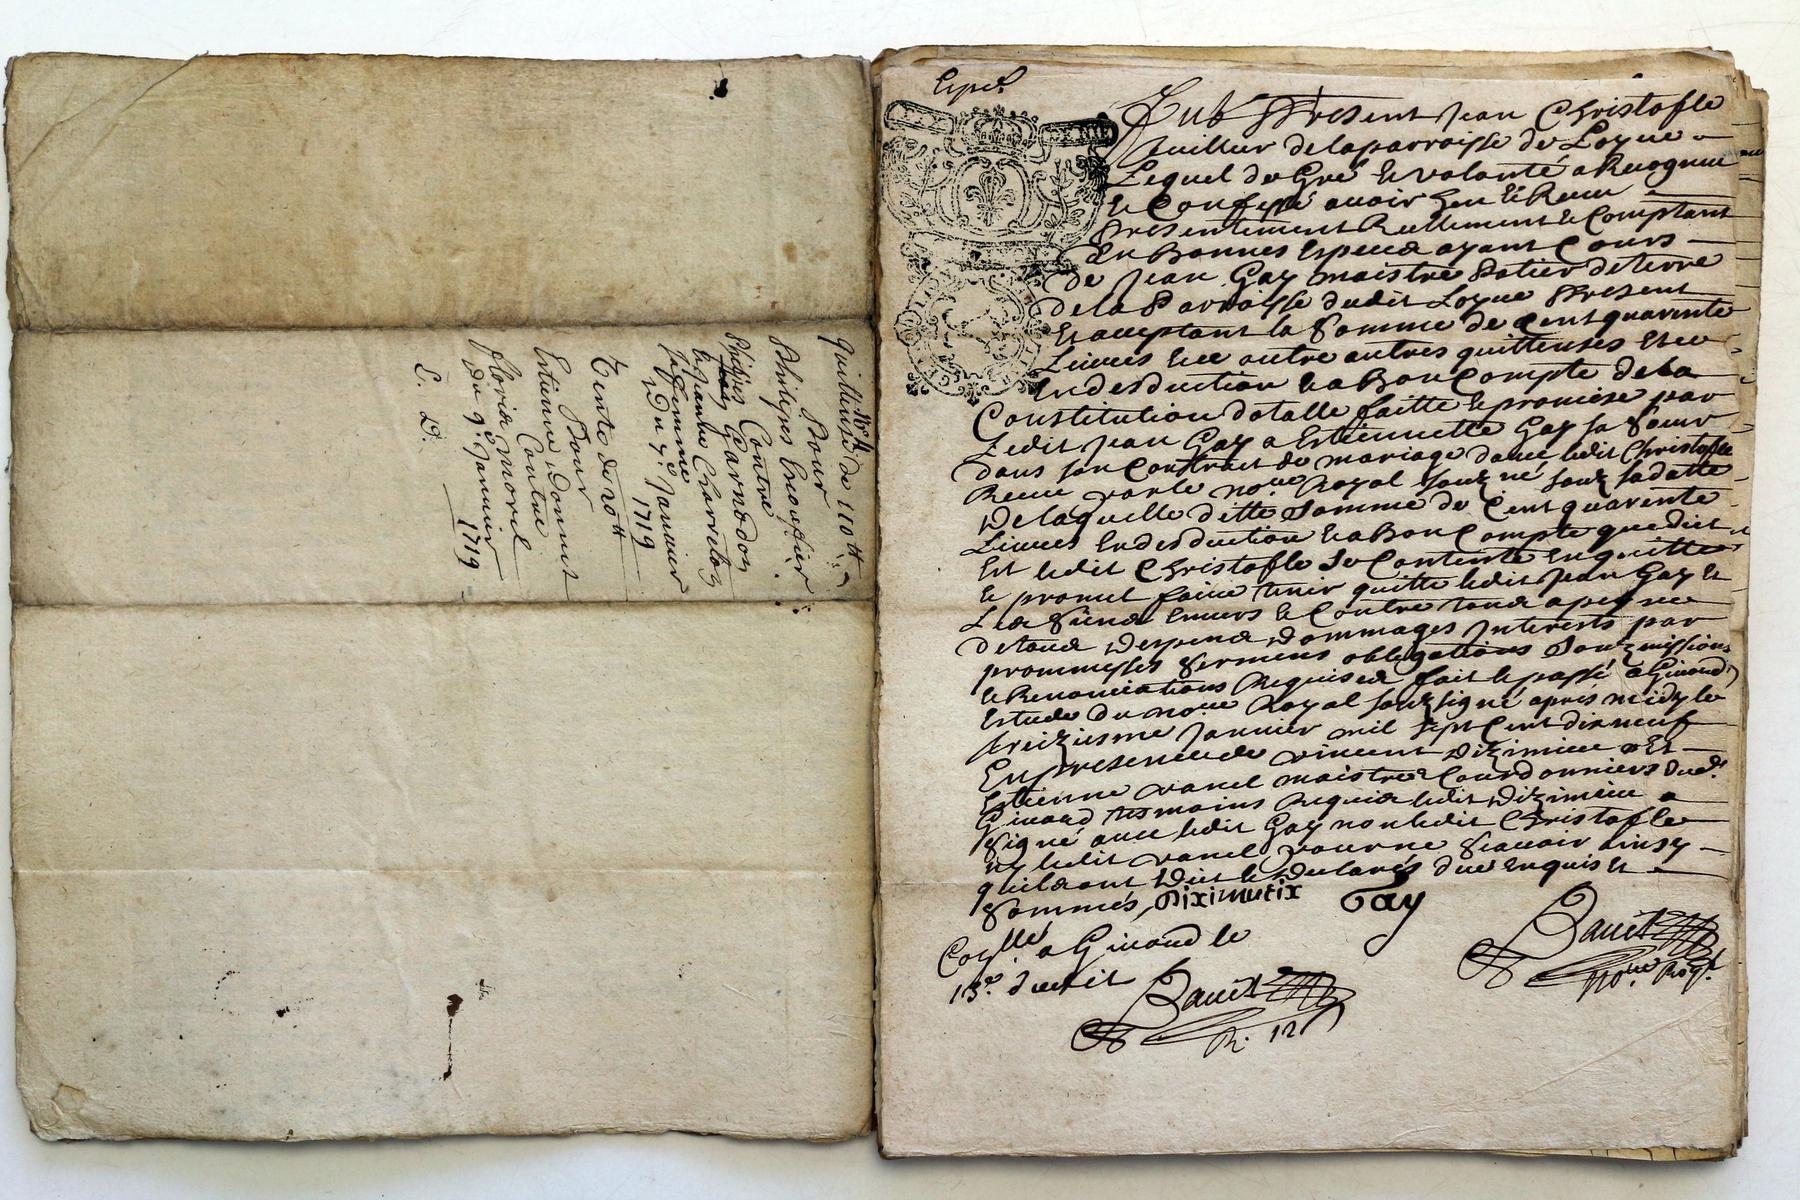 quittance de 110 #
Pour
Philipes
Contre
Philipes Garnodon
et Jeanne Charreton
sa femme
Du 7e Januier
1719
Vente de 20 #
Pour
Estienne Donnet
Contre
Floris Morel
Du 9e Januier
1719
E. D.
Expé.
Fut Present Jean Christofle
de la parroisse de Loyue
Lequel de Gré et volonté a Recognu
et Confessé auoir heu et Receu
Presentement Reellement et Comptant
En Bonnes Especes ayant Cours
de Jean Gay maistre Potier de terre
de la Parroisse dudit Loyue Present
Et acceptant la Somme de Cent quarente
Liures et ce outre autres quittenses Et en
En desduction et a Bon Compte de la
Constitution dotalle faitte et promise par
Ledit Jean Gay a Estiennette Gay sa Soeur
dans son Contrait de mariage auec ledit Christofle
Receu par le nore Royal souzné souz sa datte
De laquelle ditte Somme de Cent quarente
Liures En desduction et a Bon Compte que dict
Est ledit Christofle Se Contente En quitte
et promet faire tenir quitte ledit Jean Gay Et
Les Siens Enuers et Contre tous a peyne
de tous Despens Dommages Interests par
prommesses Sermens obligations Souzmissions
et Renonciations Requises fait et passé a Giuord
Estude du nore Royal souzsigné apres midy le
treiziesme Januier mil sept Cent dix neuf
En presence de vincent Diximieu Et
Estienne vanel maistres Courdonniers dud.
Giuord tesmoins Requis ledit Diximieu a
Signé auec ledit Gay non ledit Christofle
ny ledit vanel pour ne Scauoir ainsy
quils ont Dict et Declarés de ce enquis et
Sommés, Diximieux Gay
Conllé a Giuord le
13e dudit
nore Roy.
R. 12 s